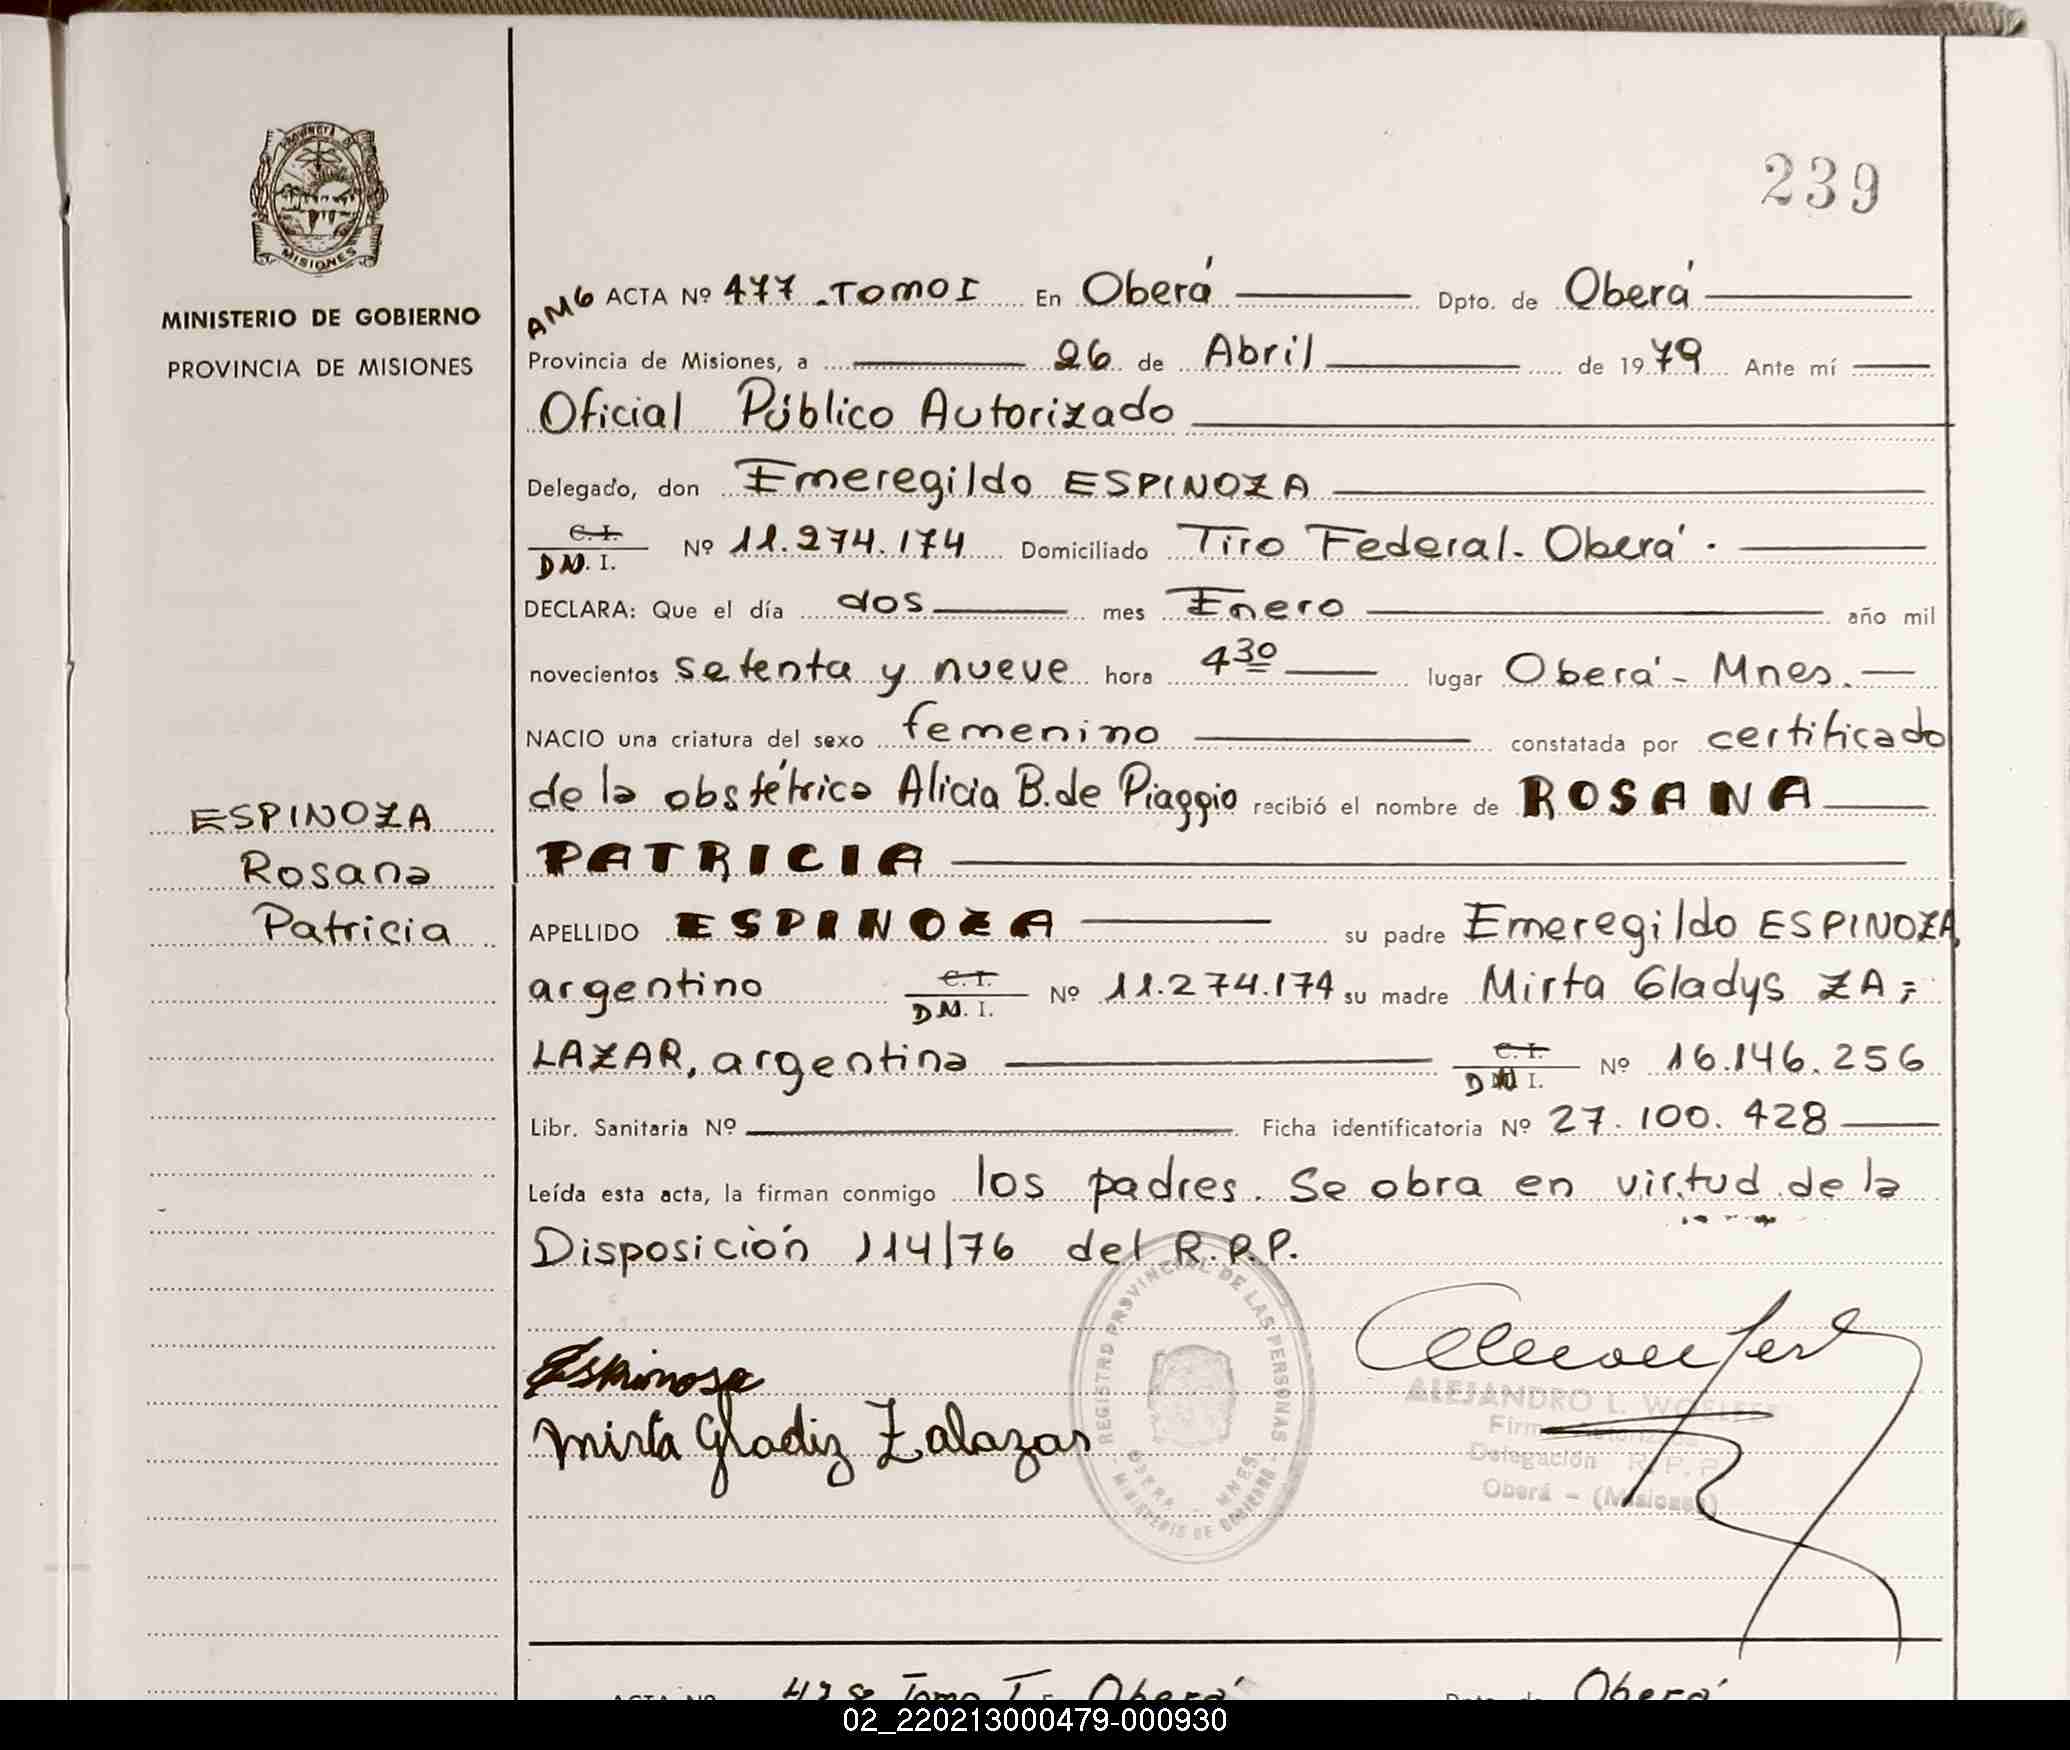 239
PROVINCIA DE
MISIONES
MINISTERIO DE GOBIERNO
PROVINCIA DE MISIONES
AMG ACTA Nº 477 .TOMO I En Oberá Dpto. de Oberá
Provincia de Misiones, a 26 de Abril de 1979 Ante mí
Oficial Público Autorizado
Delegado, don Emeregildo ESPINOZA
C. I.
DN. I. Nº 11.274.174 Domiciliado Tiro Federal - Oberá.
DECLARA: Que el día dos mes Enero año mil
novecientos setenta y nueve hora 4 30 lugar Oberá - Mnes.
NACIO una criatura del sexo femenino constatada por certificado
de la obstétrica Alicia B. de Piaggio recibió el nombre de ROSANA
PATRICIA
ESPINOZA
Rosana
Patricia
APELLIDO ESPINOZA su padre Emeregildo ESPINOZA,
argentino C. I.
DN. I. Nº 11.274.174 su madre Mirta Gladys ZA=
LAZAR, argentina C. I.
DN I. Nº 16.146.256
Libr. Sanitaria Nº Ficha identificatoria Nº 27.100.428
Leída esta acta, la firman conmigo los padres. Se obra en virtud de la
Disposición 114/76 del R.P.P.
REGISTRO PROVINCIAL DE LAS PERSONAS
OBERA - MNES.
MINISTERIO DE GOBIERNO
Espinosa
Mirta Gladiz Zalazar
ALEJANDRO L.
Delegación R. P. P.
Oberá - (Misiones)
ACTA Nº 478 Tomo I En Oberá Dpto. de Oberá
02_220213000479-000930